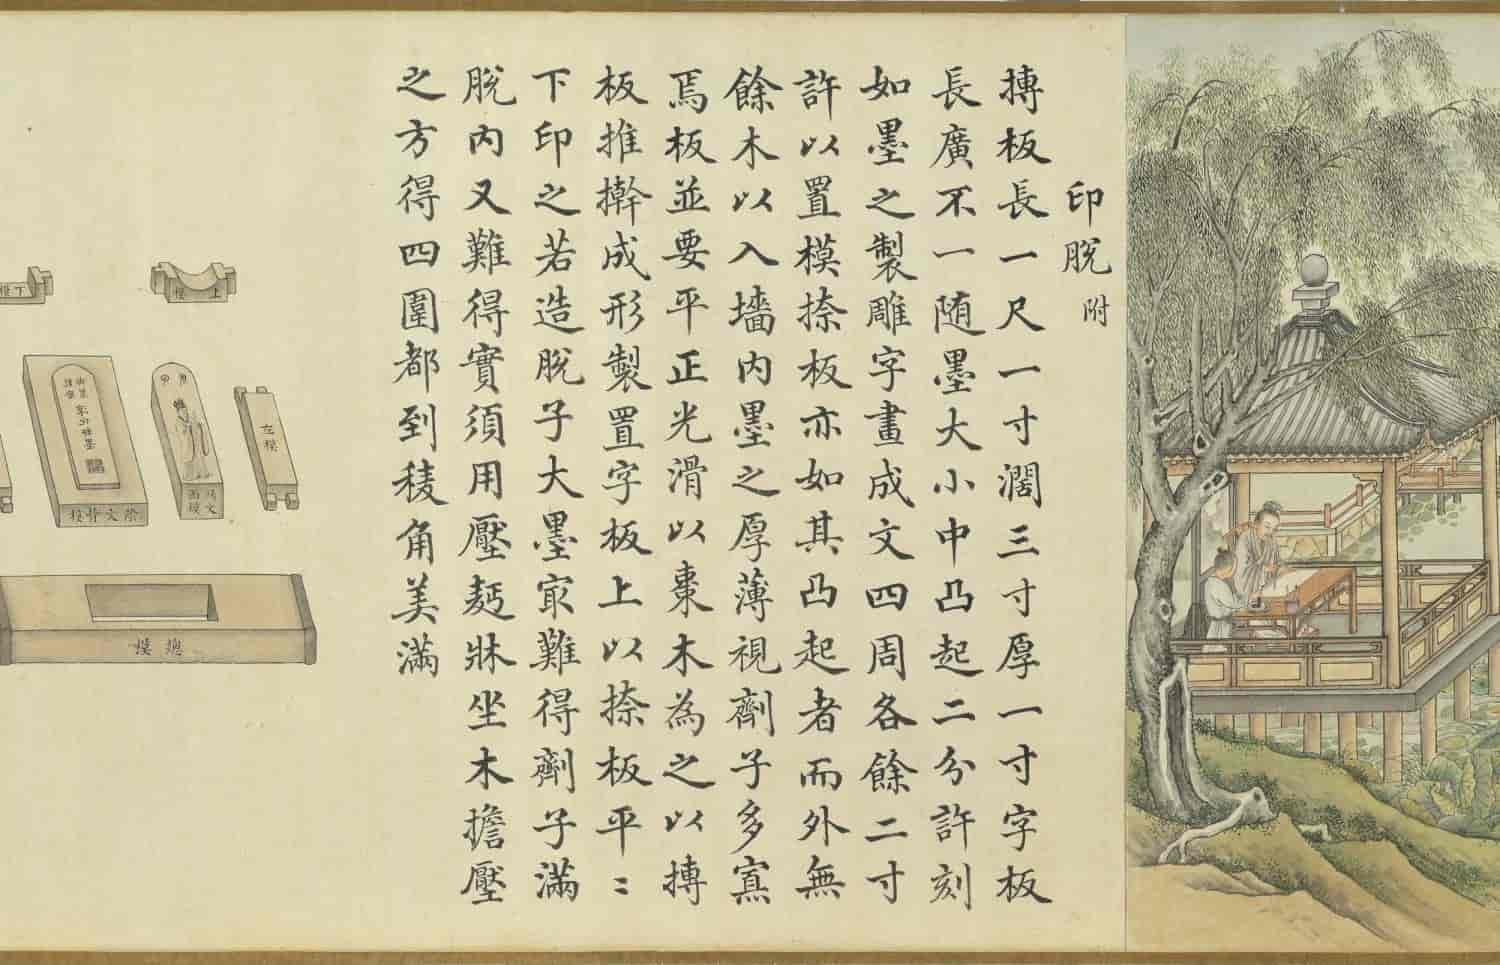 印脫附
搏板長一尺一寸濶三寸厚一寸字板
長廣不一随墨大小中凸起二分許刻
如墨之製雕字畫成文四周各餘二寸
許以置模捺板亦如其凸起者而外無
餘木以入墻内墨之厚薄視劑子多寡
焉板並要平正光滑以棗木為之以搏
板推擀成形製置字板上以捺板平〻
下印之若造脫子大墨㝡難得劑子滿
脫内又難得實須用壓麪牀坐木擔壓
之方得四圍都到稜角美滿
上模
下模
左模
面模
陰文脊模
總模